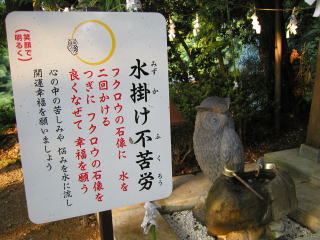 水掛け不苦労
みず か ふ く ろう
フクロウの石像に 水を
二回かける
つぎに フクロウの石像を
良くなぜて 幸福を願う
心の中の苦しみや 悩みを水に流し
開運幸福を願いましょう
笑顔で
明るく